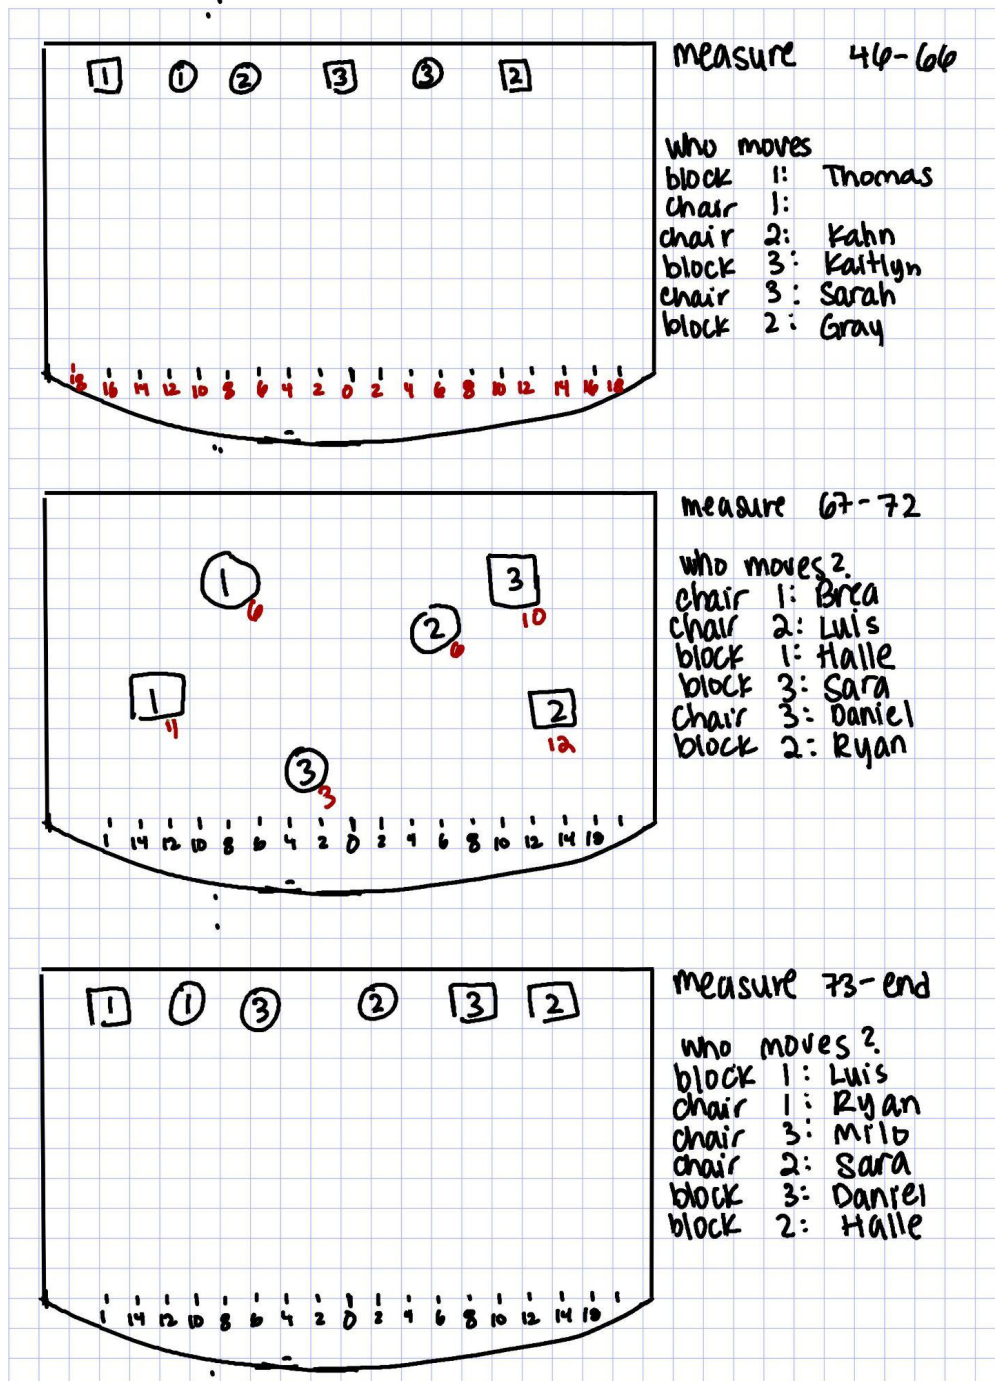 1 1 2 3 3 2
measure 46-66
who moves
block 1: Thomas
chair 1:
chair 2: Kahn
block 3: Kaitlyn
chair 3: Sarah
block 2: Gray
18 16 14 12 10 8 6 4 2 0 2 4 6 8 10 12 14 16 18
measure 67-72
who moves?
chair 1: Brea
chair 2: Luis
block 1: Halle
block 3: Sara
chair 3: Daniel
block 2: Ryan
1 3
6 10
2
6
1 2
11 12
3
3
1 14 12 10 8 6 4 2 0 2 4 6 8 10 12 14 18
1 1 3 2 3 2
measure 73-end
who moves?
block 1: Luis
chair 1: Ryan
chair 3: Milo
chair 2: Sara
block 3: Daniel
block 2: Halle
1 14 12 10 8 6 4 2 0 2 4 6 8 10 12 14 18